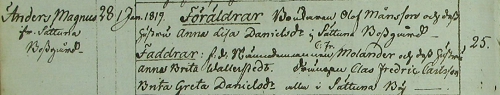 Anders Magnus 28 1 Jan. 1819. Föräldrar Bonden Olof Månsson och dess
fr Sättuna hustru Anna Lisa Danielsdr i Sättuna
Faddrar: f.d. Nämndemannen Molander och dess hustru 25.
Anna Brita Wallerstedt. Clas Fredric Carlsson
Brita Greta Danielsdr alla i Sättuna By